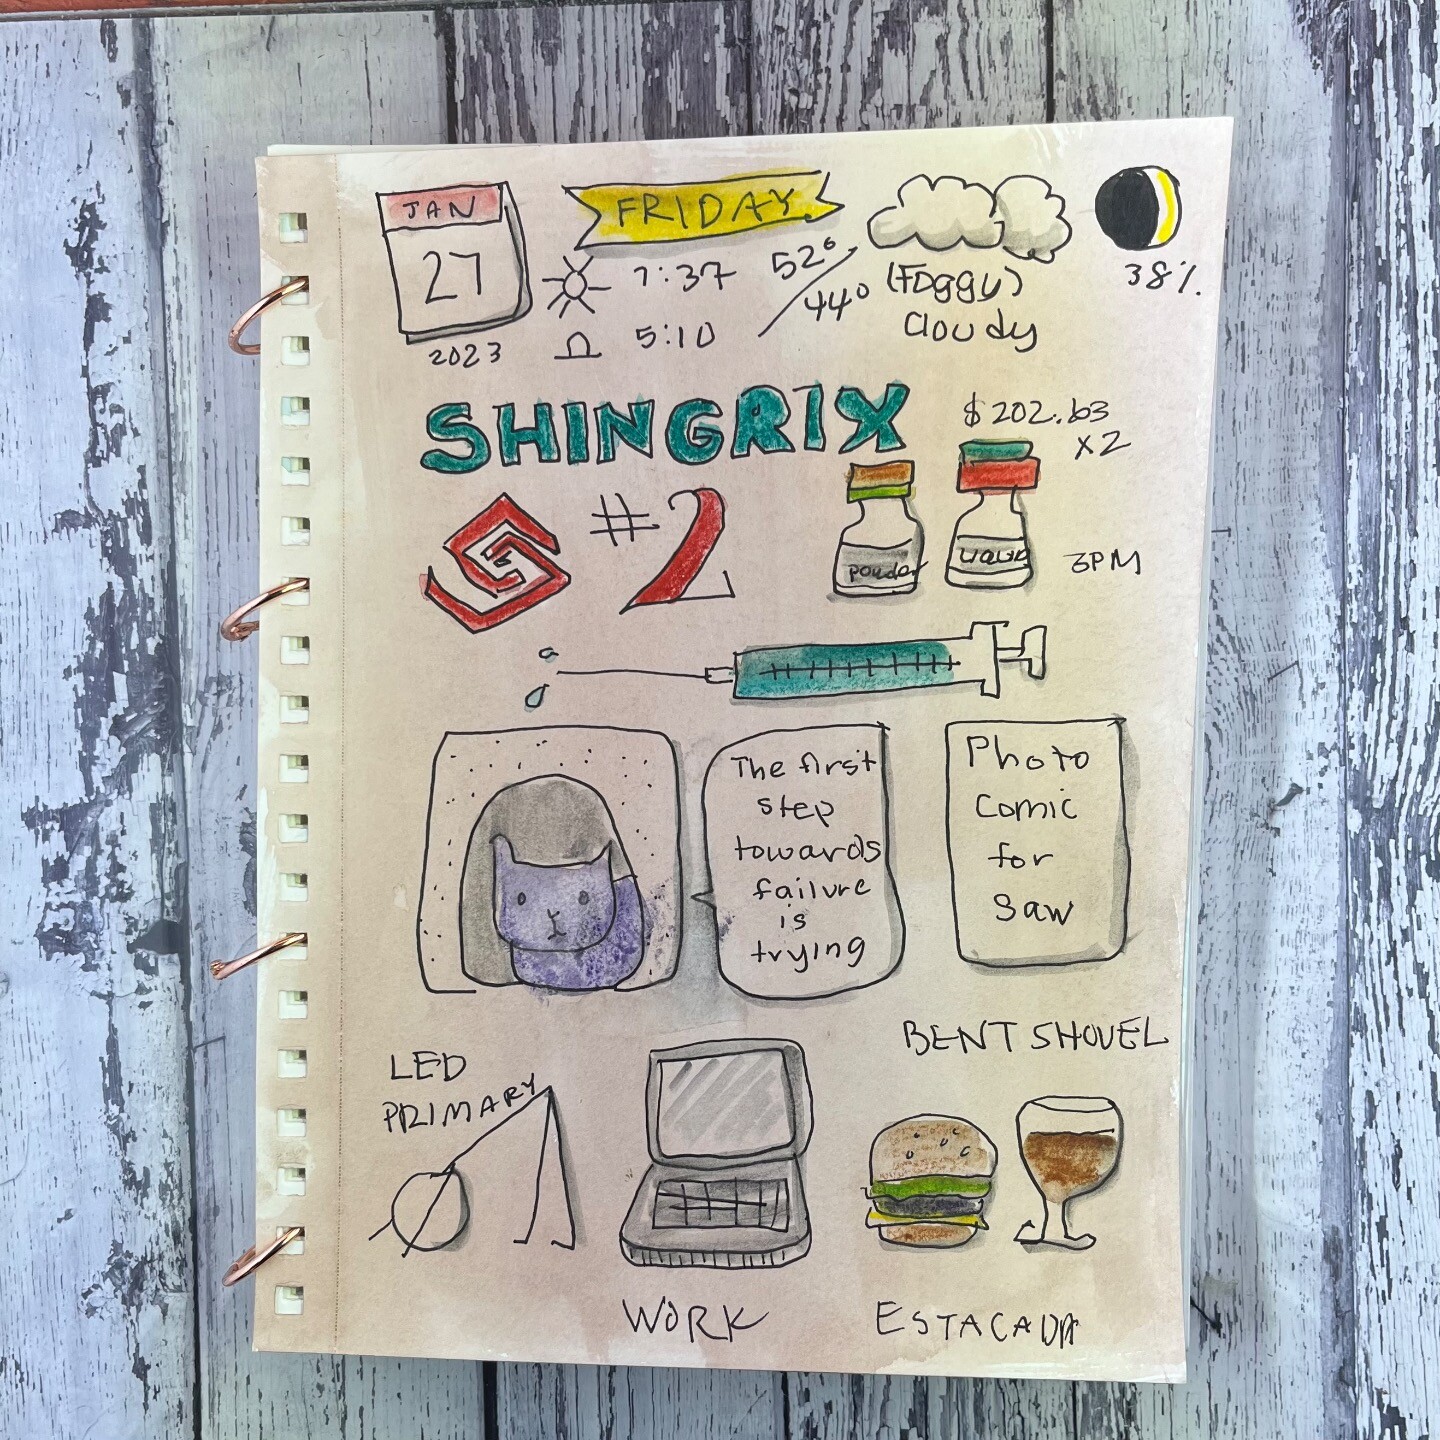 JAN
27
2023
FRIDAY
7:37
5:10
52°
44°
(Foggy)
Cloudy
38%
SHINGRIX
$202.63
x2
#2
powder
LIQUID
3PM
The first
step
towards
failure
is
trying
Photo
Comic
for
Saw
LED
PRIMARY
WORK
BENT SHOVEL
ESTACADA